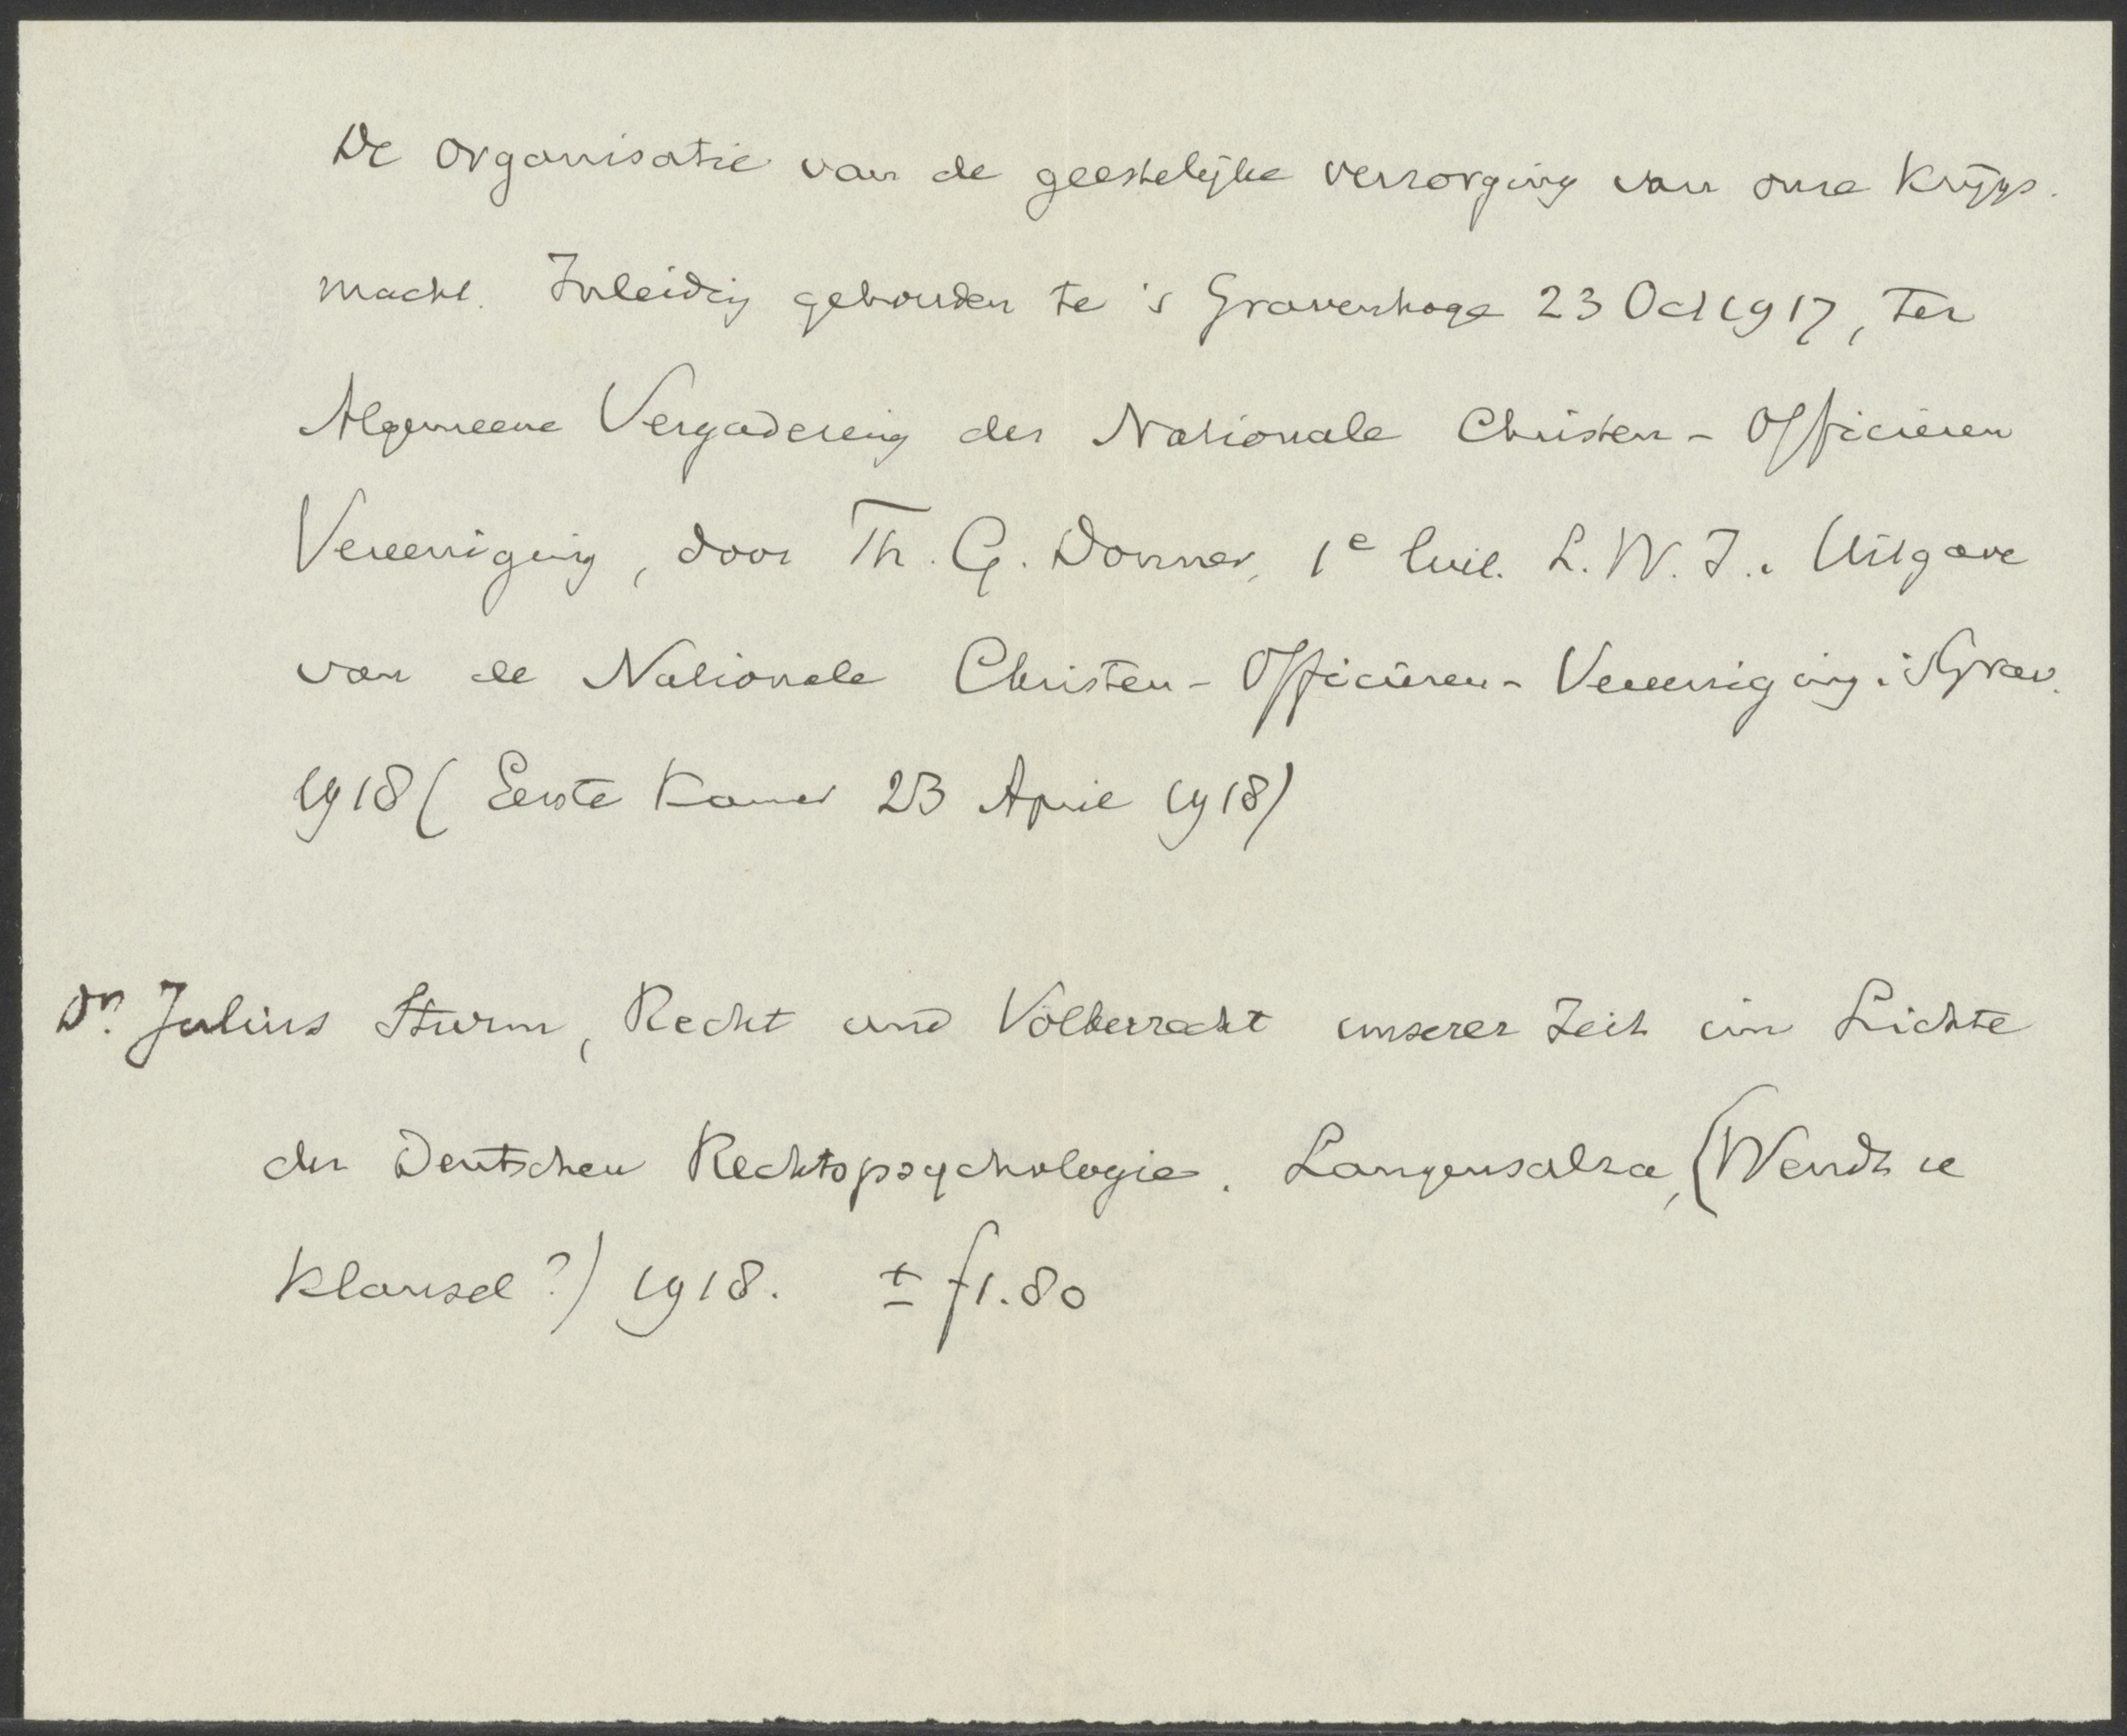 De organisatie van de geestelijke verzorging van onze Krijgs-
macht. Inleiding gehouden te 's Gravenhage 23 Oct 1917, ter
Algemeene Vergadering der Nationale Christen-Officieren
Vereeniging, door Th. G. Donner, 1e luit. L. W. I.. Uitgave
van de Nationale Christen-Officieren-Vereeniging. 'sGrav.
1918 (Eerste Kamer 23 April 1918)
Dr. Julius Sturm, Recht und Völkerrecht unserer Zeit im Lichte
der Deutschen Rechtspsychologie. Langensalza, (Wendt u
Klauwel?) 1918. ± f1.80